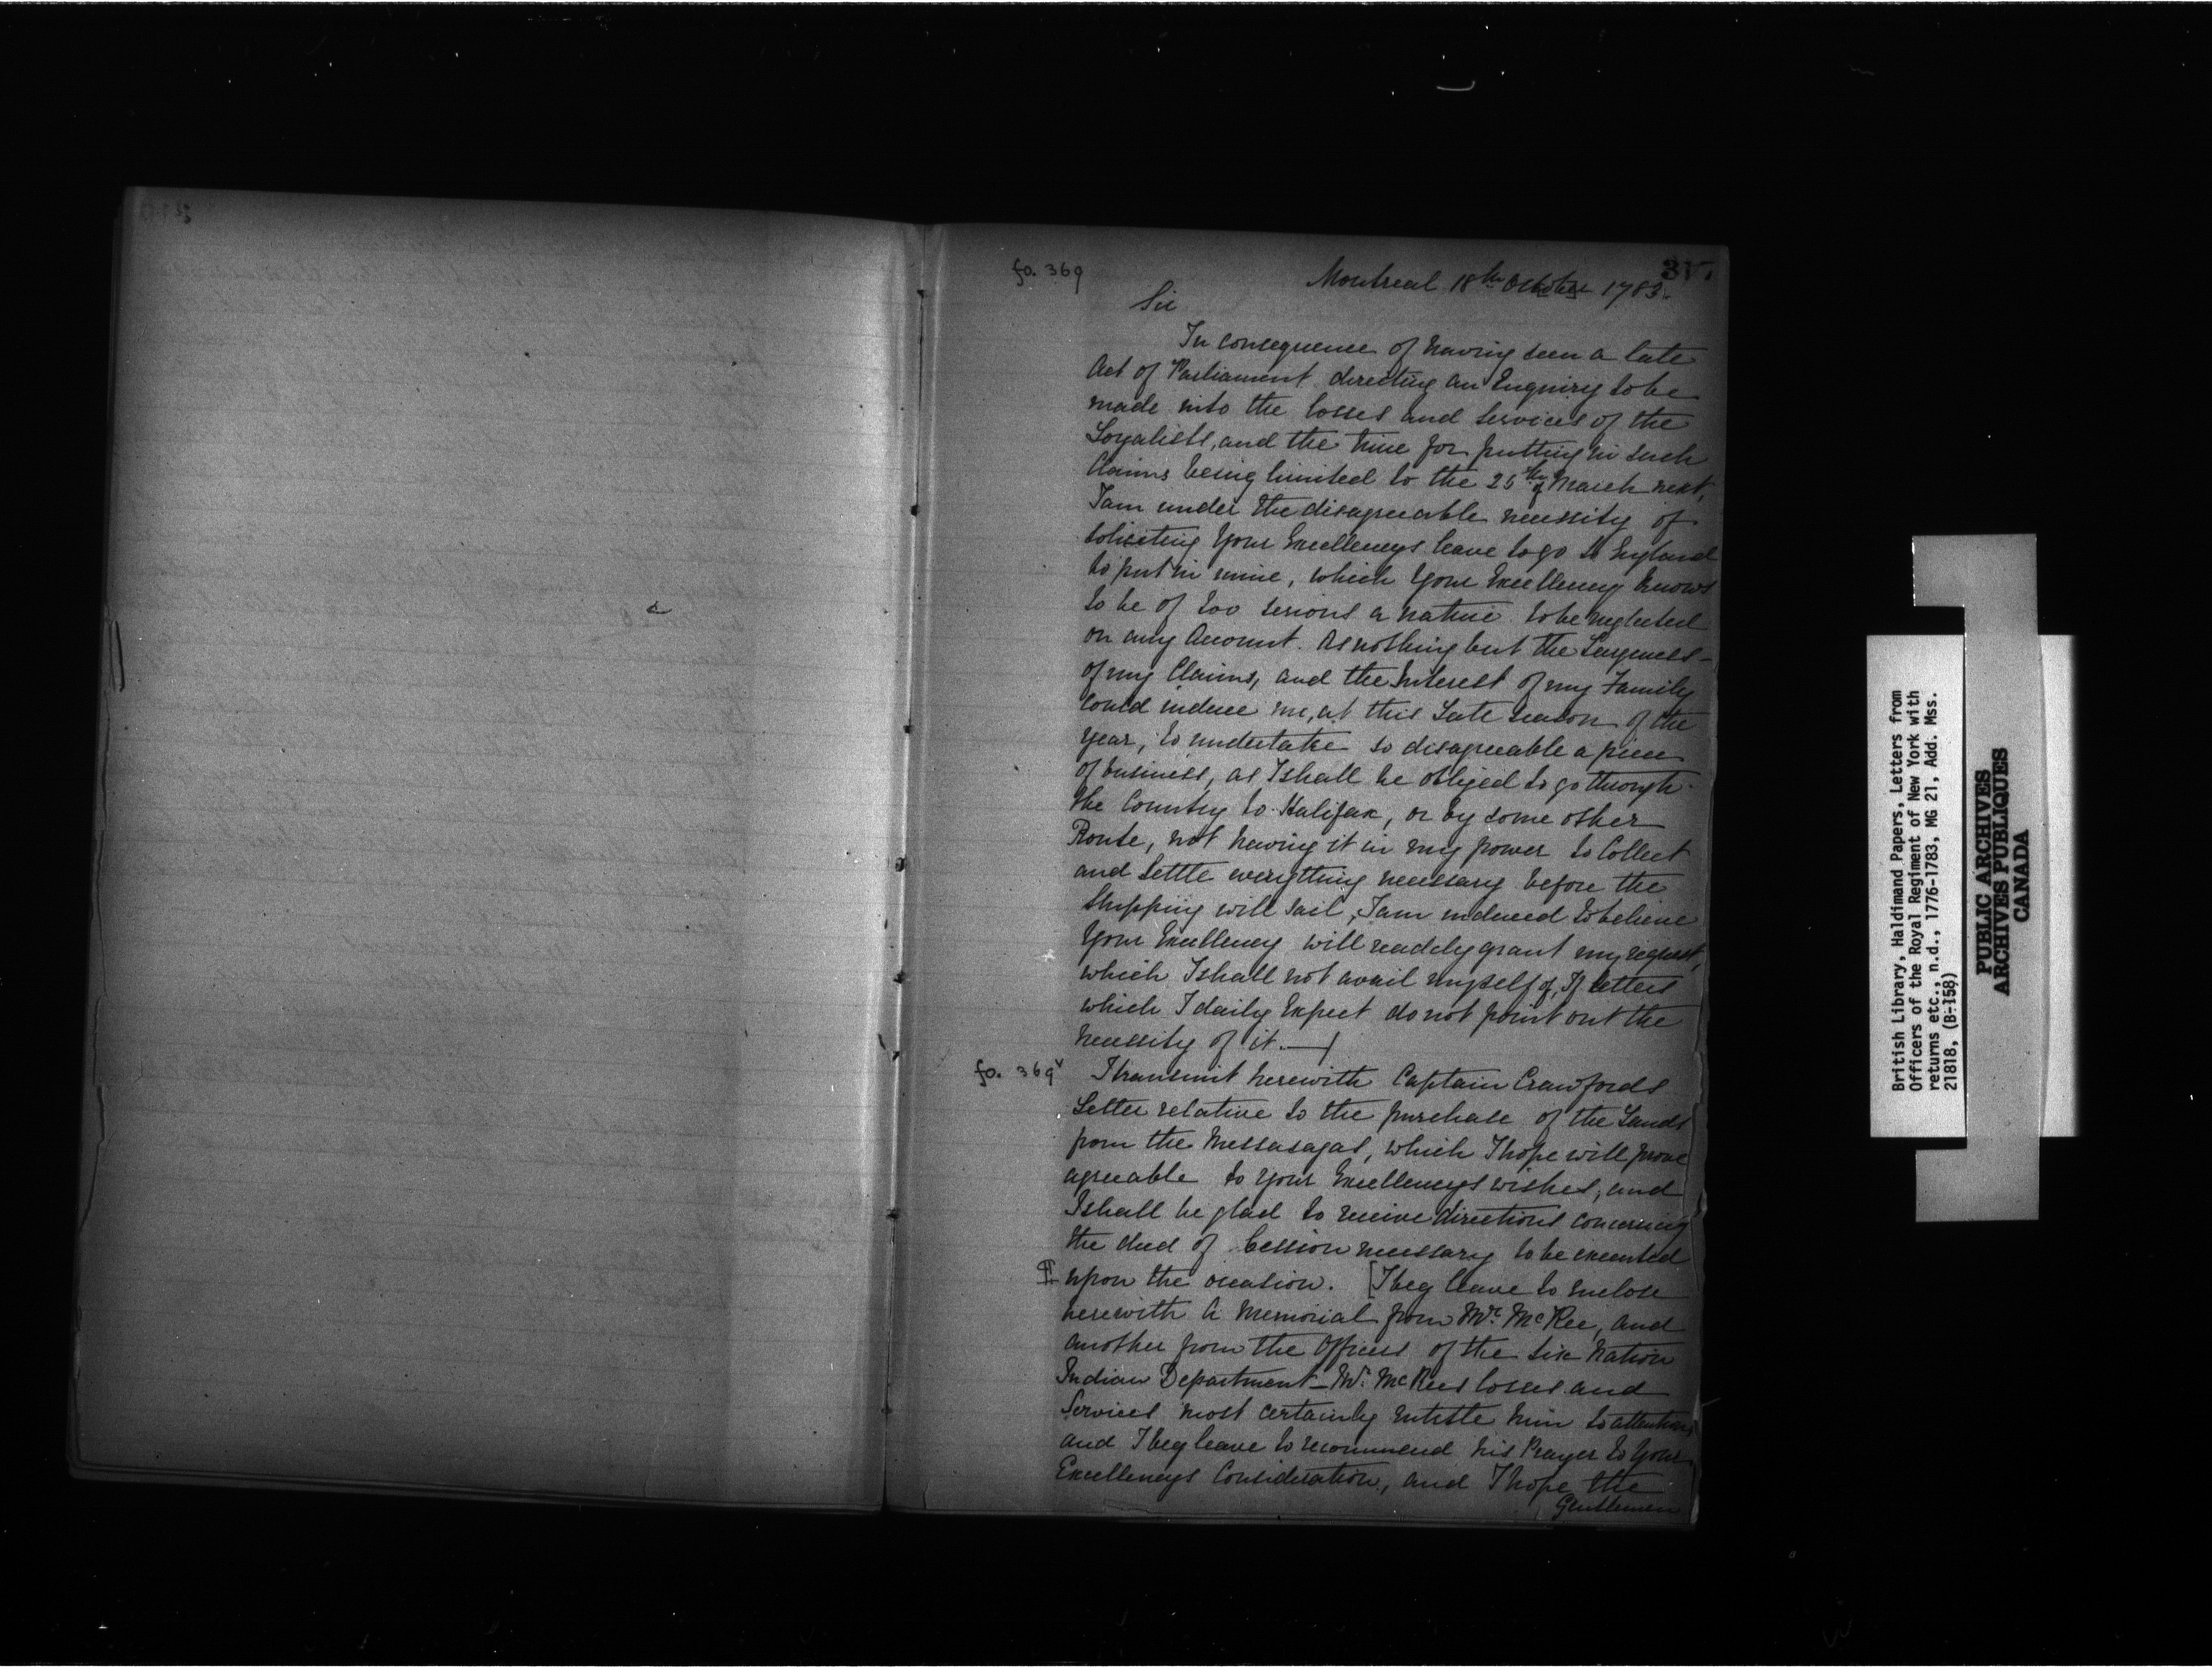 fo. 369
317
Montreal 18th October 1783.
Sir
In consequence of having seen a late
Act of Parliament directing an Enquiry to be
made into the losses and services of the
Loyalists, and the time for putting in such
Claims being limited to the 25th of March next,
I am under the disagreeable necessity of
soliciting Your Excellencys leave to go to England
to put in mine, which Your Excellency knows
to be of too serious a nature to be neglected
on any Account. As nothing but the Largeness
of my Claims, and the Interest of my Family
could induce me, at this Late season of the
year, to undertake so disagreeable a piece
of business, as I shall be obliged to go through
the Country to Halifax, or by some other
Route, not having it in my power to Collect
and Settle everything necessary before the
Shipping will sail, I am induced to believe
Your Excellency will readily grant my request,
which I shall not avail myself of, If letters
which I daily Expect do not point out the
necessity of it. —
fo. 369v
I transmit herewith Captain Crawfords
Letter relative to the purchase of the Lands
from the Messasagas, which I hope will prove
agreeable to your Excellencys wishes, and
I shall be glad to receive directions concerning
the deed of Cession necessary to be executed
upon the occasion. [I beg leave to enclose
herewith a Memorial from Mr. McKee, and
another from the Officers of the Six Nation
Indian Department — Mr. McKees losses and
Services most certainly entitle him to attention,
and I beg leave to recommend his Prayer to Your
Excellencys Consideration, and I hope the
Gentlemen
British Library, Haldimand Papers, Letters from
Officers of the Royal Regiment of New York with
returns etc., n.d., 1776-1783, MG 21, Add. Mss.
21818, (B-158)
PUBLIC ARCHIVES
ARCHIVES PUBLIQUES
CANADA